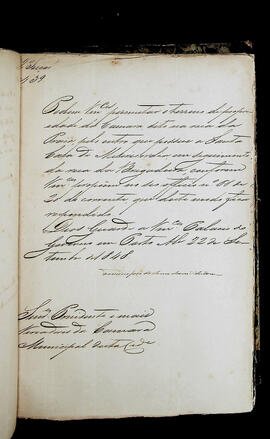 N. 39
Podem Vm.ces permutar o terreno de proprie
dade da Camara sito na rua da
Praia pelo outro que possue a Santa
Casa de Misericordia em seguimento
da rua do Bragança, conforme
Vm.ces propuzerão em officio nº 61 de
20 do corrente que deste modo fica
respondido.
Deos Guarde a Vm.ces Palacio do
Governo em Porto Al. 22 de Se
tembro de 1848
Snr.es Presidente e mais
Vereadores da Camara
Municipal desta Cid.e